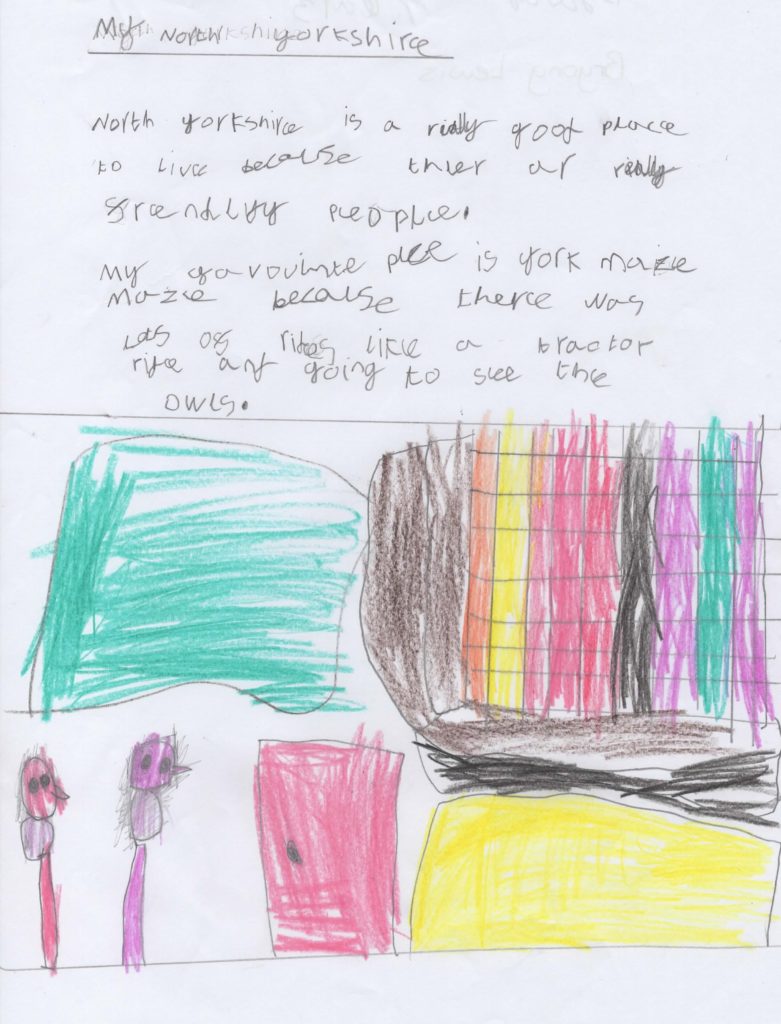 My North yorkshire
North yorkshire is a really good place
to live because thier ar really
freindlyy people.
My favourite plce is york maize
maze because there was
Lots of rides like a tractor
ride and going to see the
owls.